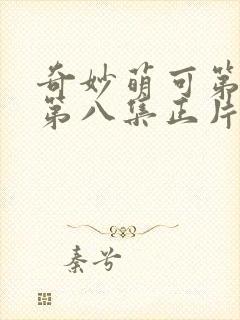 奇妙萌可第
第八集正片
秦兮